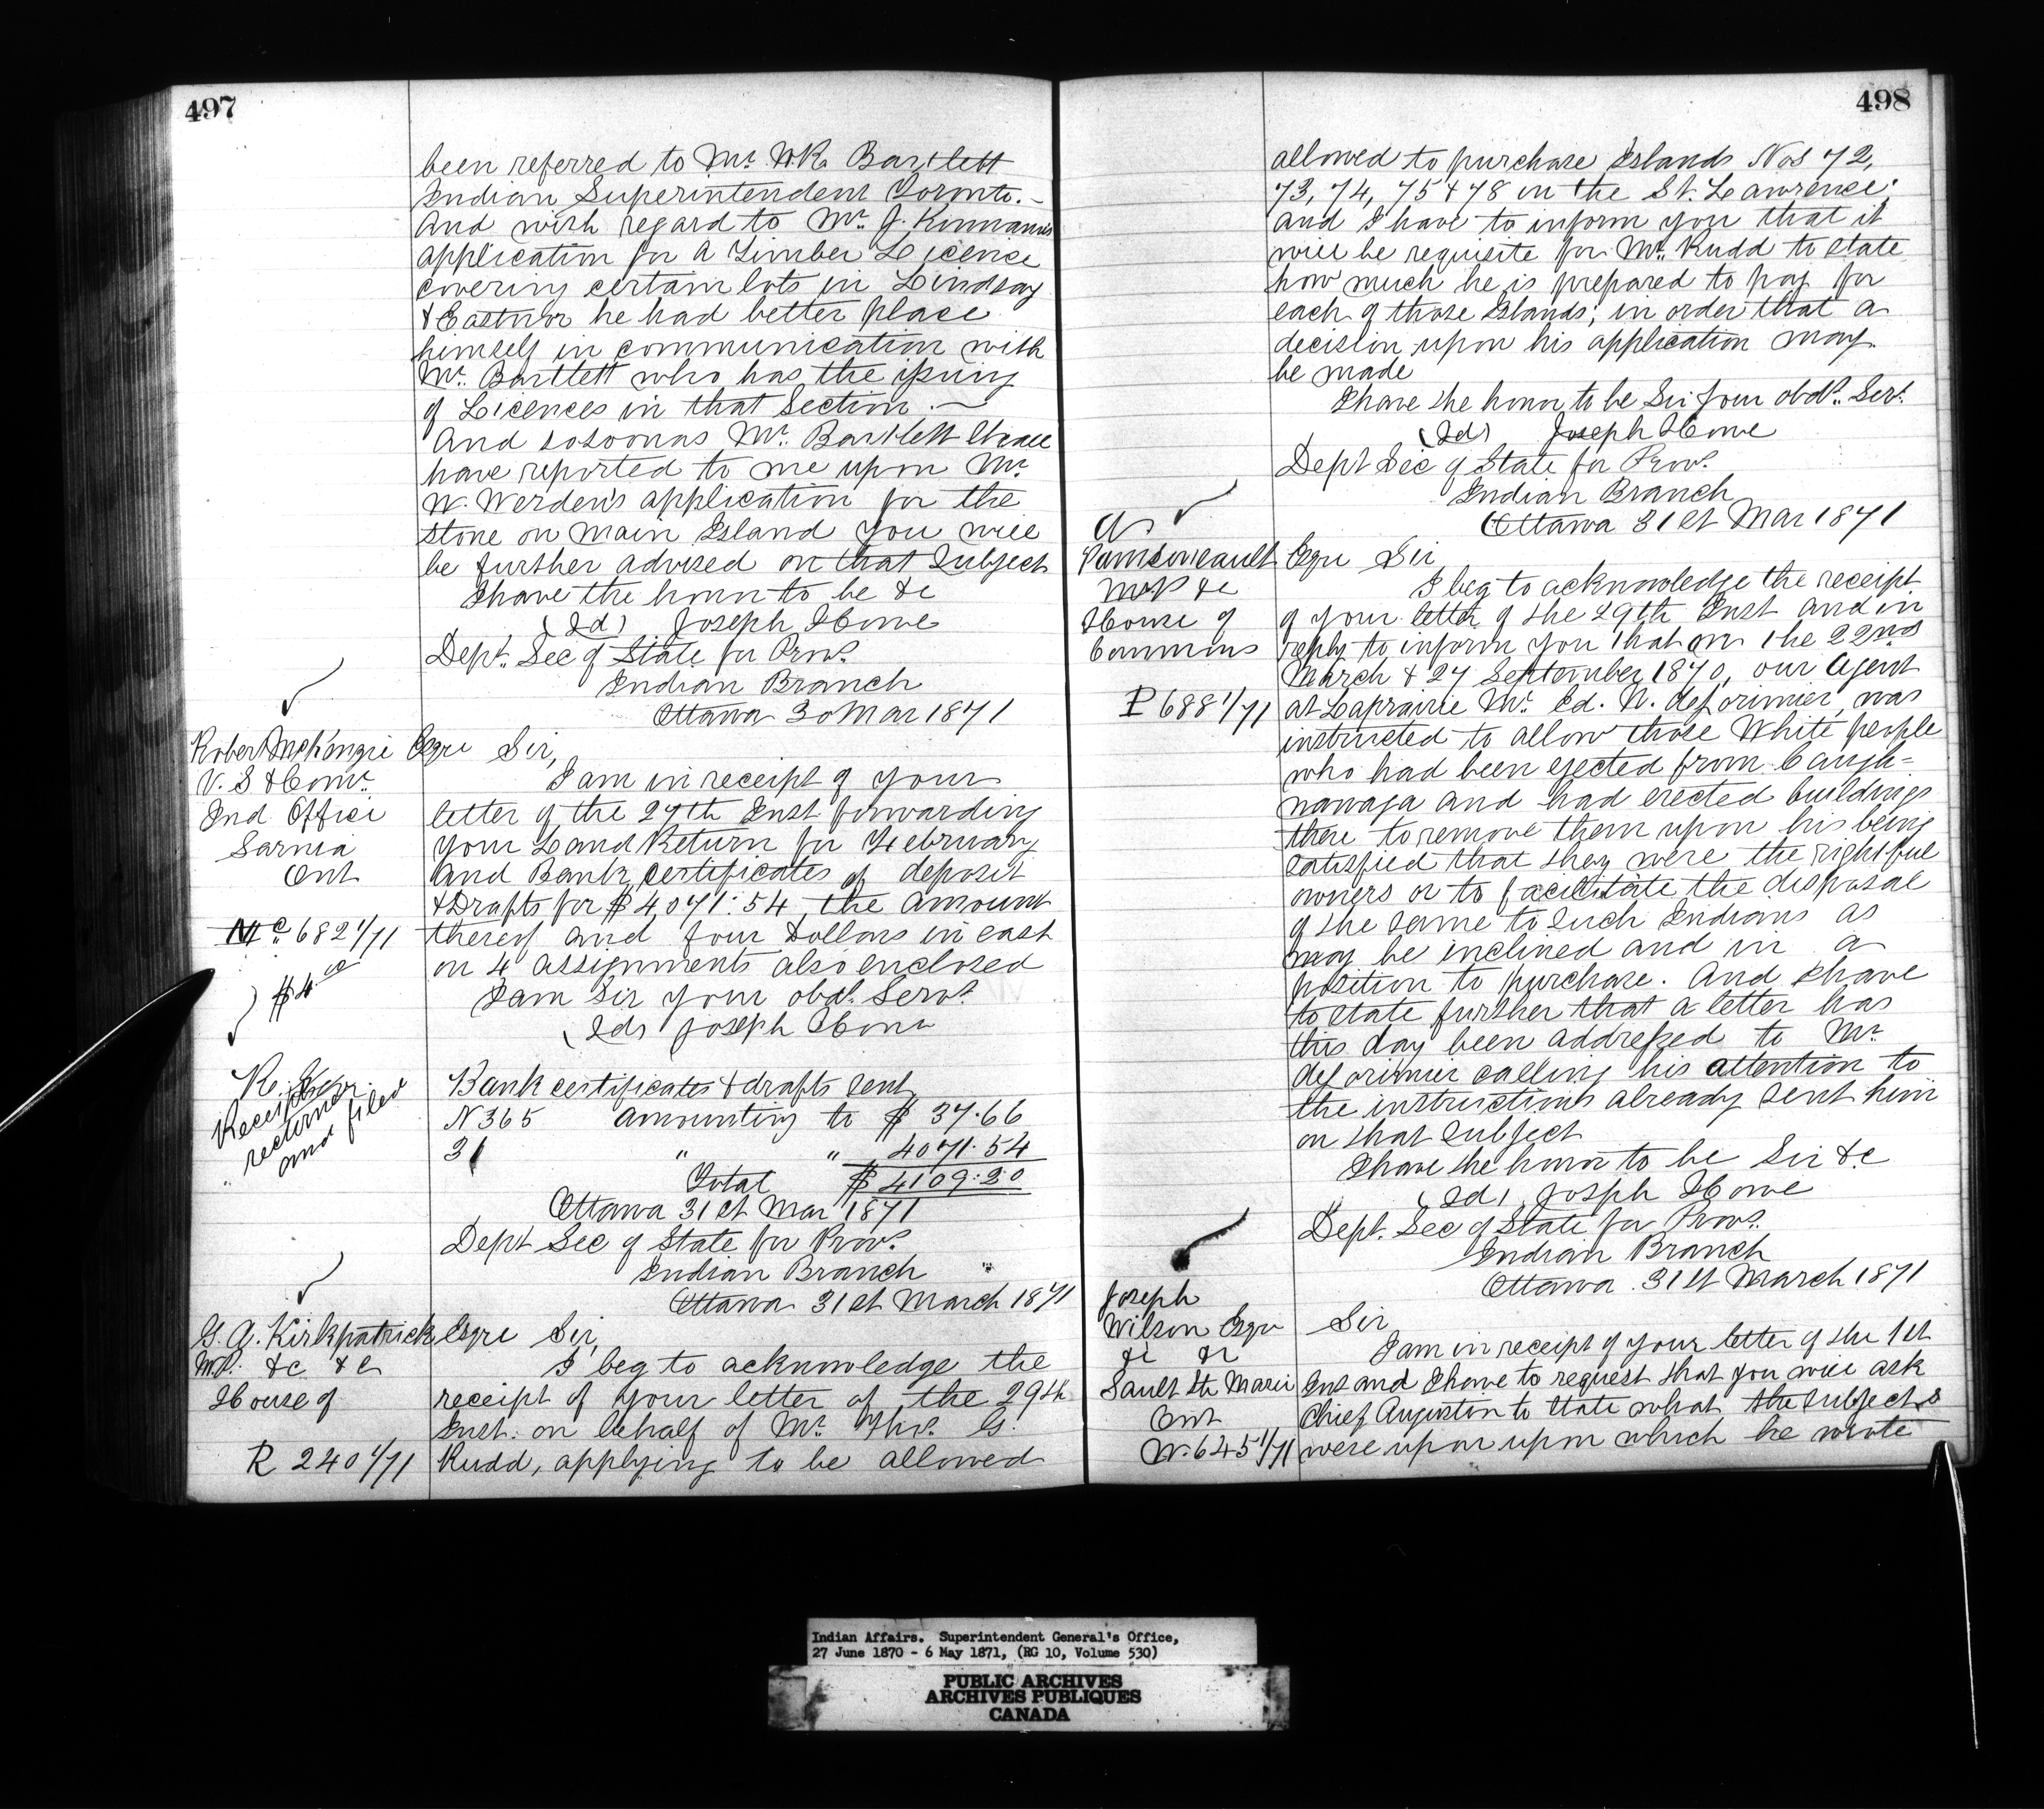 497
been referred to Mr. W.R. Bartlett
Indian Superintendent Toronto.—
And with regard to Mr. J. Kinnamis
application for a Timber Licence
covering certain lots in Lindsay
& Eastnor he had better place
himself in communication with
Mr. Bartlett who has the issuing
of Licences in that Section.—
And so soon as Mr. Bartlett shall
have reported to me upon Mr.
W. Werden's application for the
stone on Main Island you will
be further advised on that Subject
I have the honor to be &c
(Sd) Joseph Howe
Dept. Sec of State for Provs.
Indian Branch
Ottawa 30 Mar 1871
Robert McKenzie Esqre Sir,
V. S & Comr.
Ind Office
Sarnia
Ont
Mc 682 1/71
$4.00
I am in receipt of your
letter of the 27th Inst forwarding
your Land Return for February
and Bank certificates of deposit
& Drafts for $4,071:54 the amount
thereof and four Dollars in cash
on 4 assignments also enclosed
I am Sir your obdt. Servt.
(Sd) Joseph Howe
Receipts
returned
and filed
Bank certificates & drafts sent
N 365 amounting to $ 37.66
31 " " 4071.54
Total $ 4109:20
Ottawa 31st Mar 1871
Dept Sec of State for Provs.
Indian Branch
Ottawa 31st March 1871
G. A. Kirkpatrick Esqre Sir,
M.P. &c &c
House of
R 240 1/71
I beg to acknowledge the
receipt of your letter of the 29th
Inst. on behalf of Mr. Thos. G.
Rudd, applying to be allowed
498
allowed to purchase Islands Nos 72,
73, 74, 75 & 78 in the St. Lawrence;
and I have to inform you that it
will be requisite for Mr. Rudd to state
how much he is prepared to pay for
each of those Islands; in order that a
decision upon his application may
be made
I have the honor to be Sir Your obdt. Servt.
(Sd) Joseph Howe
Dept Sec of State for Provs.
Indian Branch
Ottawa 31st Mar 1871
A
Pamsoneault Esqre Sir
M.P. &c
House of
Commons
P 688 1/71
I beg to acknowledge the receipt
of your letter of the 29th Inst and in
reply to inform you that on the 22nd
March & 27 September 1870, our Agent
at Laprairie Mr. Ed. N. deLorimier, was
instructed to allow those White people
who had been ejected from Caugh=
nawaga and had erected buildings
there to remove them upon his being
satisfied that they were the rightful
owners or to facilitate the disposal
of the same to such Indians as
may be inclined and in a
position to purchase. And I have
to state further that a letter has
this day been addressed to Mr.
deLorimier calling his attention to
the instructions already sent him
on that subject
I have the honor to be Sir &c
(Sd) Joseph Howe
Dept. Sec of State for Provs.
Indian Branch
Ottawa 31st March 1871
Joseph
Wilson Esqre Sir
&c &c
Sault Ste Marie
Ont
W. 645 1/71
I am in receipt of your letter of the 1st
Inst and I have to request that you will ask
Chief Augustin to state what the subjects
were upon upon which he wrote
Indian Affairs. Superintendent General's Office,
27 June 1870 - 6 May 1871, (RG 10, Volume 530)
PUBLIC ARCHIVES
ARCHIVES PUBLIQUES
CANADA